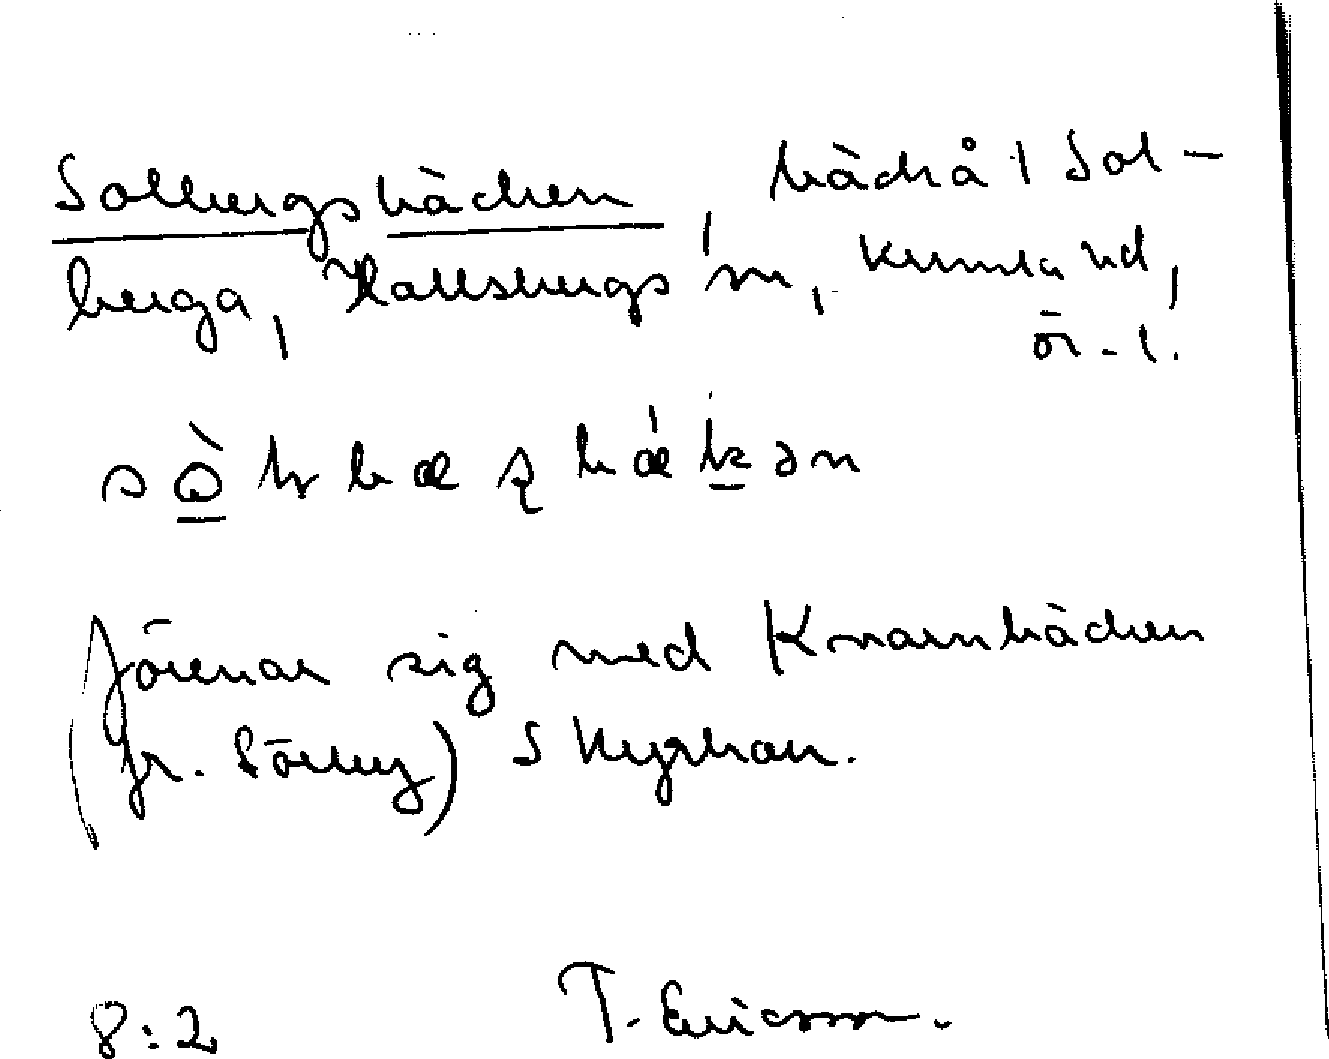 Solbergsbäcken, bäck å 1 Sol-
berga, Hallsbergs sn, Kumla hd,
Ör. l.
förenar sig med Knarnbäcken
(fr. Sörby) S kyrkan.
8:2 T. Ericsson.